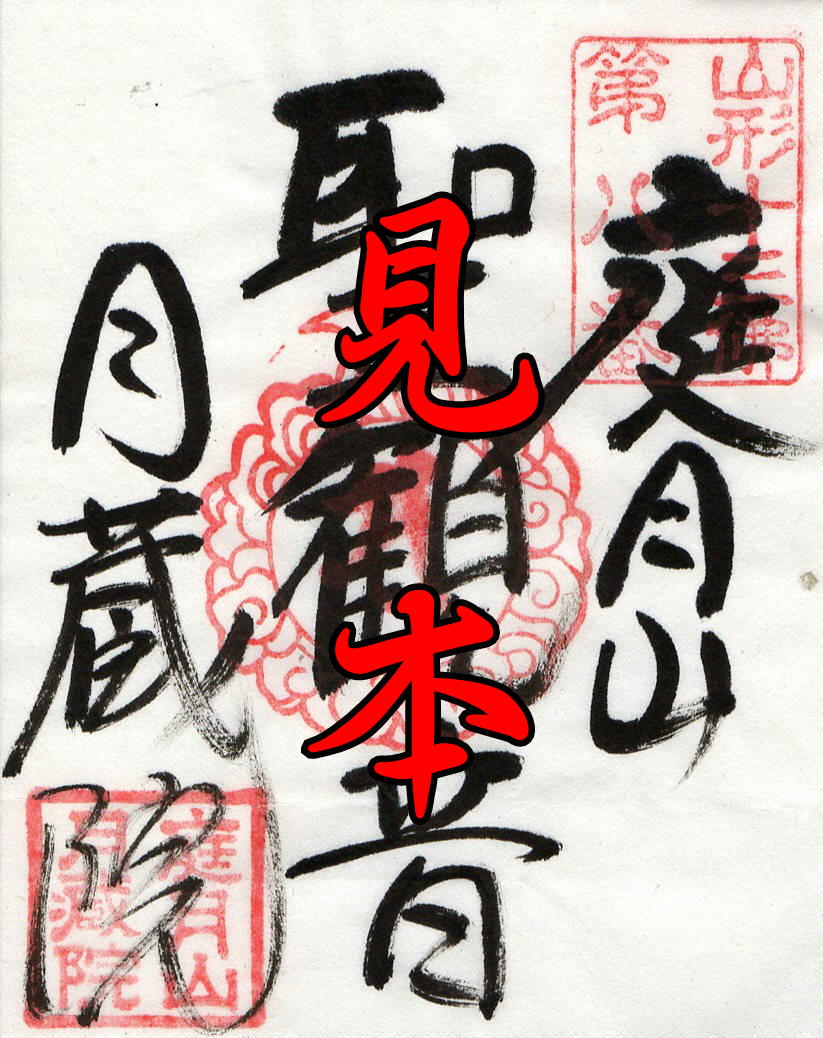 山形十三佛
第八番
庭月山
聖観音
見本
月蔵院
庭月山
月蔵院